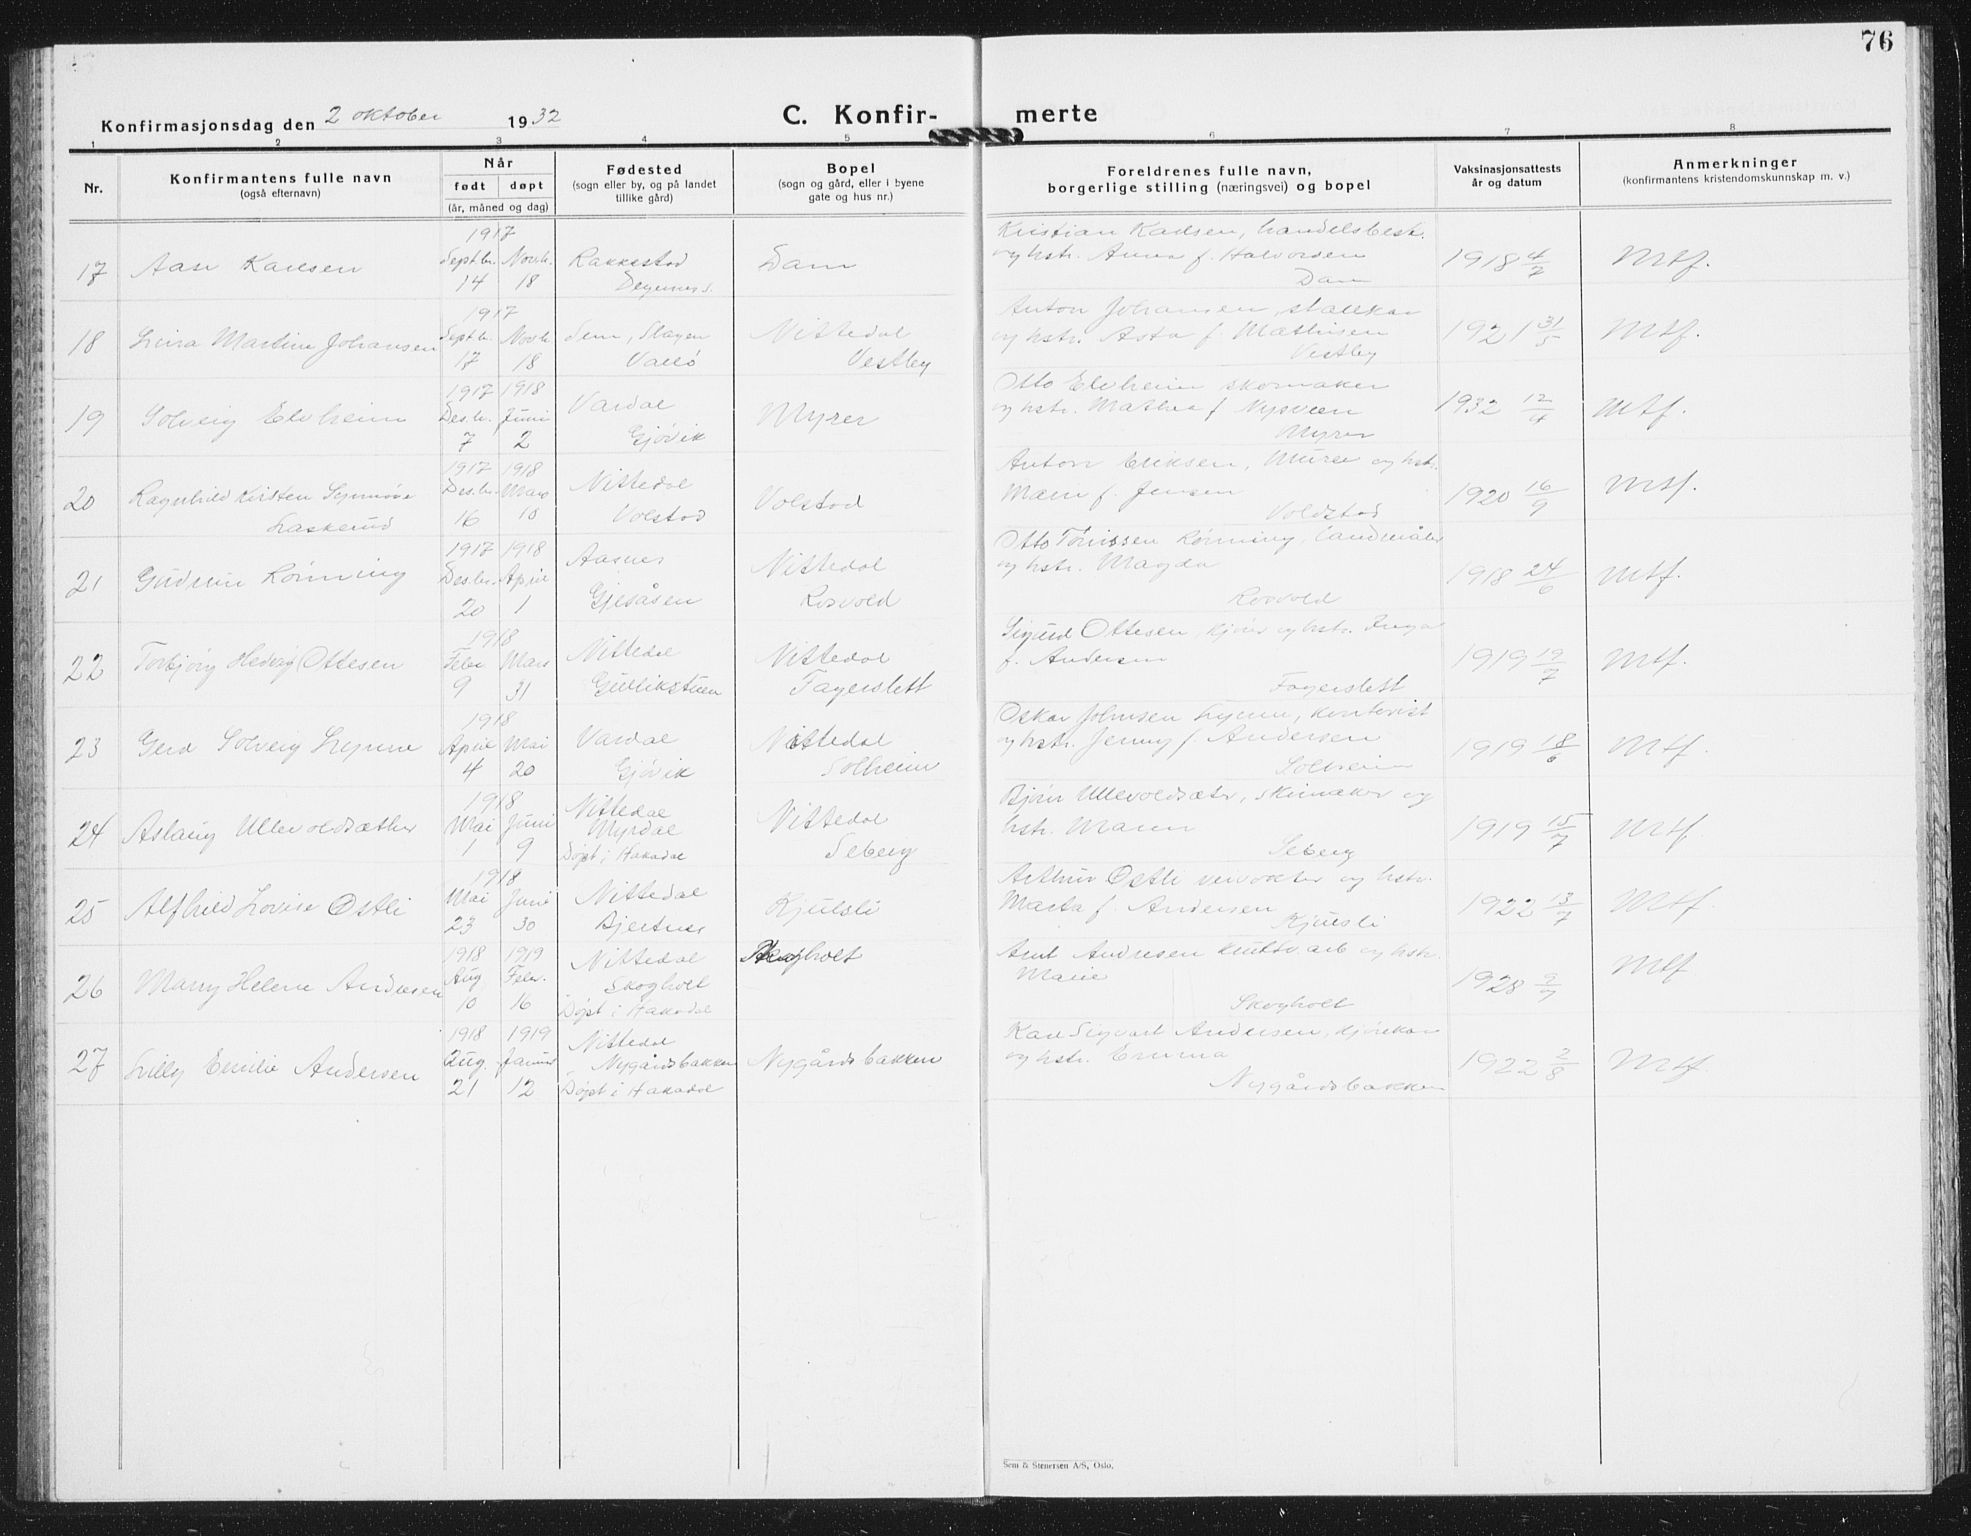 76
Konfirmasjonsdag den 2 oktober 1932
C. Konfir-
merte
1 2 3 4 5 6 7 8
Nr.
Konfirmantens fulle navn
(også efternavn)
Når
født døpt
(år, måned og dag)
Fødested
(sogn eller by, og på landet
tillike gård)
Bopel
(sogn og gård, eller i byene
gate og hus nr.)
Foreldrenes fulle navn,
borgerlige stilling (næringsvei) og bopel
Vaksinasjonsattests
år og datum
Anmerkninger
(konfirmantens kristendomskunnskap m. v.)
17 Aase Karlsen
1917
Septbr. Novb.
14 18
Rakkestad
Degernes s.
Dam
Kristian Karlsen, handelsbest.
og hstr. Anna f. Halvorsen
Dam
1918 4/7
Mtf.
18 Martine Johansen
1917
Septbr. Novbr.
17 18
Sem, Slagen
Vallø
Nittedal
Vestby
Anton Johansen, stallkar
og hstr. Asta f. Mathisen
Vestby
1921 31/5
Mtf.
19 Solveig Elvheim
1917 1918
Desbr. Juni
7 2
Vardal
Gjøvik
Myrer
Otto Elvheim skomaker
og hstr. Mathea f. Nysveen
Myrer
1932 12/4
Mtf.
20 Ragnhild Kirsten Synnøve
Laskerud
1917 1918
Desbr. Mars
16 10
Nittedal
Volstad
Volstad
Anton Eriksen, murer og hstr.
Maren f. Jensen
Voldstad
1920 16/9
Mtf.
21 Gudrun Rønning
1917 1918
Desbr. April
20 1
Aasnes
Gjesåsen
Nittedal
Rosvold
Otto Rønning, landmåler
og hstr. Magda
Rosvold
1918 24/6
Mtf.
22 Torbjørg Hedvig Ottesen
1918
Febr Mars
9 31
Nittedal
Gullikstuen
Nittedal
Fagerslett
Sigurd Ottesen, kjører og hstr. Inga
f. Andersen
Fagerslett
1919 19/7
Mtf.
23 Gerd Solveig Lynne
1918
April Mai
4 20
Vardal
Gjøvik
Nittedal
Solheim
Oskar Johnsen Lynne, kontorist
og hstr. Jenny f. Andersen
Solheim
1919 18/6
Mtf.
24 Aslaug Ullevoldsæther
1918
Mai Juni
1 9
Nittedal
Myrdal
Døpt i Hakadal
Nittedal
Seberg
Bjørn Ullevoldsæter, skimaker og
hstr. Maren
Seberg
1919 15/7
Mtf.
25 Alfhild Lovise Østli
1918
Mai Juni
23 30
Nittedal
Bjertnes
Kjulsli
Arthur Østli veivokter og hstr.
Marta f. Andersen
Kjulsli
1922 13/7
Mtf.
26 Mary Helene Andresen
1918 1919
Aug Febr.
10 16
Nittedal
Skogholt
Døpt i Hakadal
Skogholt
Andresen kruttv. arb og hstr.
Marie
Skogholt
1928 9/7
Mtf
27 Lilly Emilie Andersen
1918 1919
Aug. Januar
21 12
Nittedal
Nygårdsbakken
Døpt i Hakadal
Nygårdsbakken
Karl Sigvart Andersen, kjørekar
og hstr. Emma
Nygårdsbakken
1922 2/8
Mtf.
Sem & Stenersen A/S, Oslo.